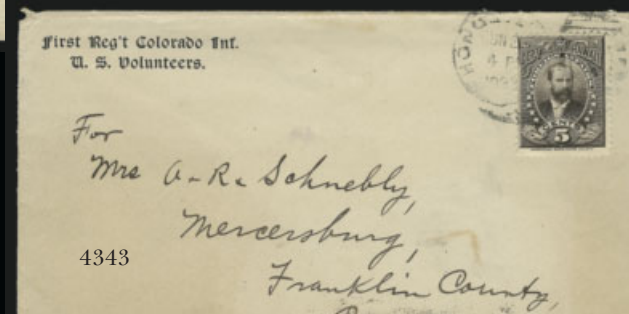 First Reg't Colorado Inf.
U. S. Volunteers.
For
Mrs A. R. Schnebly,
Mercersburg,
Franklin County,
4343
5